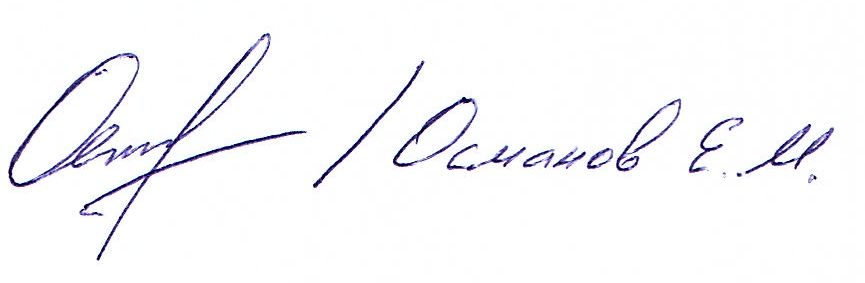 / Османов Е.М.